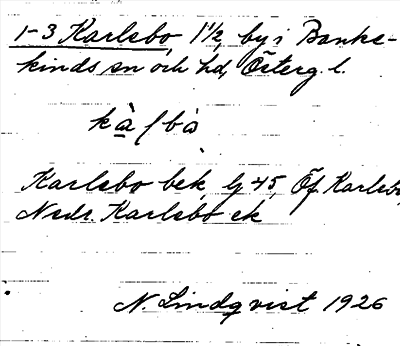 1-3 Karlsbo, 1 1/2, by i Banke-
kinds sn och hd, Österg. l.
Karlsbo bek, Öf. Karlsbo
Nedr. Karlsbo ek
N Lindqvist 1926